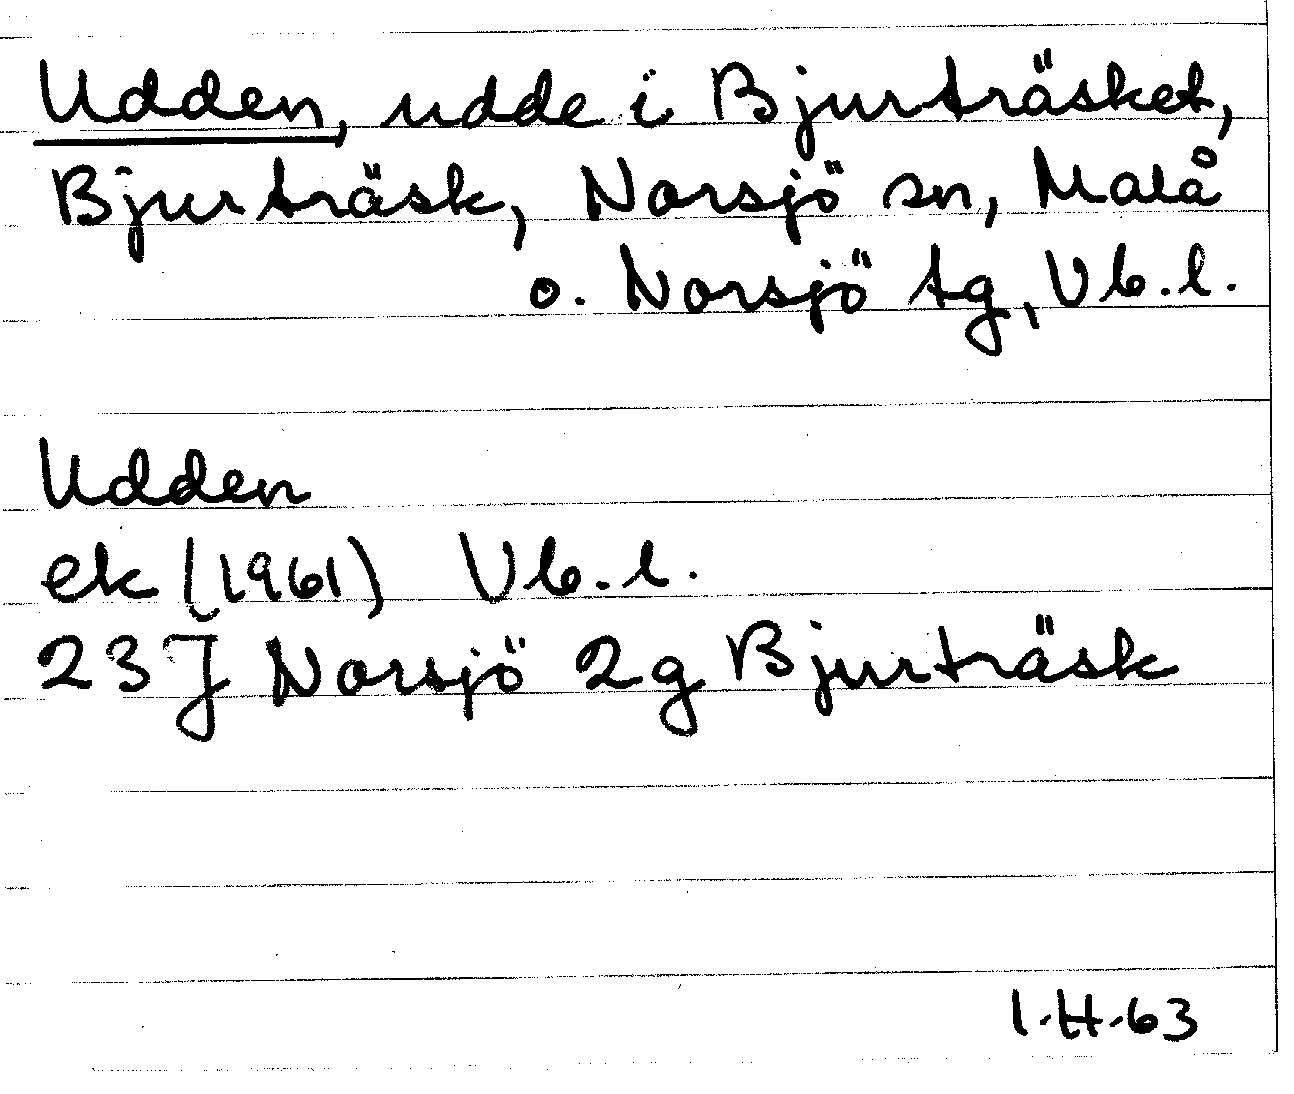 Udden, udde i Bjurträsket,
Bjurträsk, Norsjö sn, Malå
o. Norsjö tg, Vb.l.
Udden
ek (1961) Vb.l.
23J Norsjö 2g Bjurträsk
I.H.63